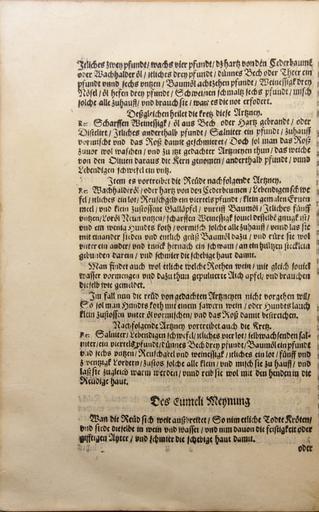 Jtliches zwey pfundt / wachs vier pfundt / dz hartz von dẽ Cederbaumẽ
oder Wachhalder öl / jtliches drey pfundt / dünnes Bech oder Theer ein
pfundt vnnd sechs vntzen / Baumöl achtzehen pfundt / Weinessigk drey
Nösel / öl hefen drey pfundt / Schweinen schmaltz sechs pfundt / misch
solche alle zuhauff / vnd brauch sie / wañ es die not erfodert.
Deßgleichen heilet die kretz diese Artzney.
Rc: Scharffen Weinessigk / öl aus Bech oder Hartz gebrandt / oder
Distilirt / Jtliches anderthalb pfundt / Salniter ein pfundt / zuhauff
vormischt vnd das Roß damit geschmieret / Doch sol man das Roß
zuuor wol waschen / vnd zu itzt gedachter Artzneyen thun / das welche
von den Oliuen daraus die Kern genomen / anderthalb pfundt / vnnd
Lebendigen schwefel ein vntz.
Jtem es vortreibet die Reude nachfolgende Artzney.
Rc: Wachhalderöl / oder hartz von den Cederbeumen / Lebendigen schwe
fel / jtliches ein lot / klein
vnreiff Baumöl / Jtliches fünff
vntzen / scharffen Weinessigk souiel desselbẽ gnugk ist /
vnd ein wenig Hundes koth / vormisch solche alle zuhauff / vnnd las sie
mit einander sieden vnd entlich geuß Baumöl dazu / vnd rüre sie wol
vnter ein ander / vnd tunck hernach ein schwam / an ein hültzen stecklein
gebunden darein / vnd schmier die schebige haut damit.
Man findet auch wol etliche welche Rothen wein / mit gleich souiel
wasser vormengen vnd dazu thun gepuluerte Aich apfel / vnd brauchen
dieselb wie gemeldet.
Im fall nun die reude von gedachten Artzneyen nicht vorgehen wil /
So sol man Hundes koth mit einem schwein / oder Hundes lauch
klein zustossen vnter öl vormischen / vnd das Roß damit bestreichen.
Nachfolgende Artzney vortreibet auch die Kretz.
Rc: Salniter / Lebendigen schwefel / jtliches vier lot / sal
niter / ein viereteil pfundt / dünnes Bech drey pfundt / Baumöl ein pfundt
vnd sechs vntzen / vnd weinessigk / jtliches ein lot / fünff vnd
zwentzigk Lorbern / zustos solche alle klein / vnd misch sie zu hauff / vnd
laß sie zugleich warm werden / vnnd reib sie wol mit den henden in die
Reudige haut.
Des Eumeli Meynung
Wan die Reud sich weit außbreitet / So nim etliche Todte Kröten /
vnd siede dieselbe in wein vnd wasser / vnd nim dauon die fettigkeit oder
vnd schmier die schebige haut damit.
oder